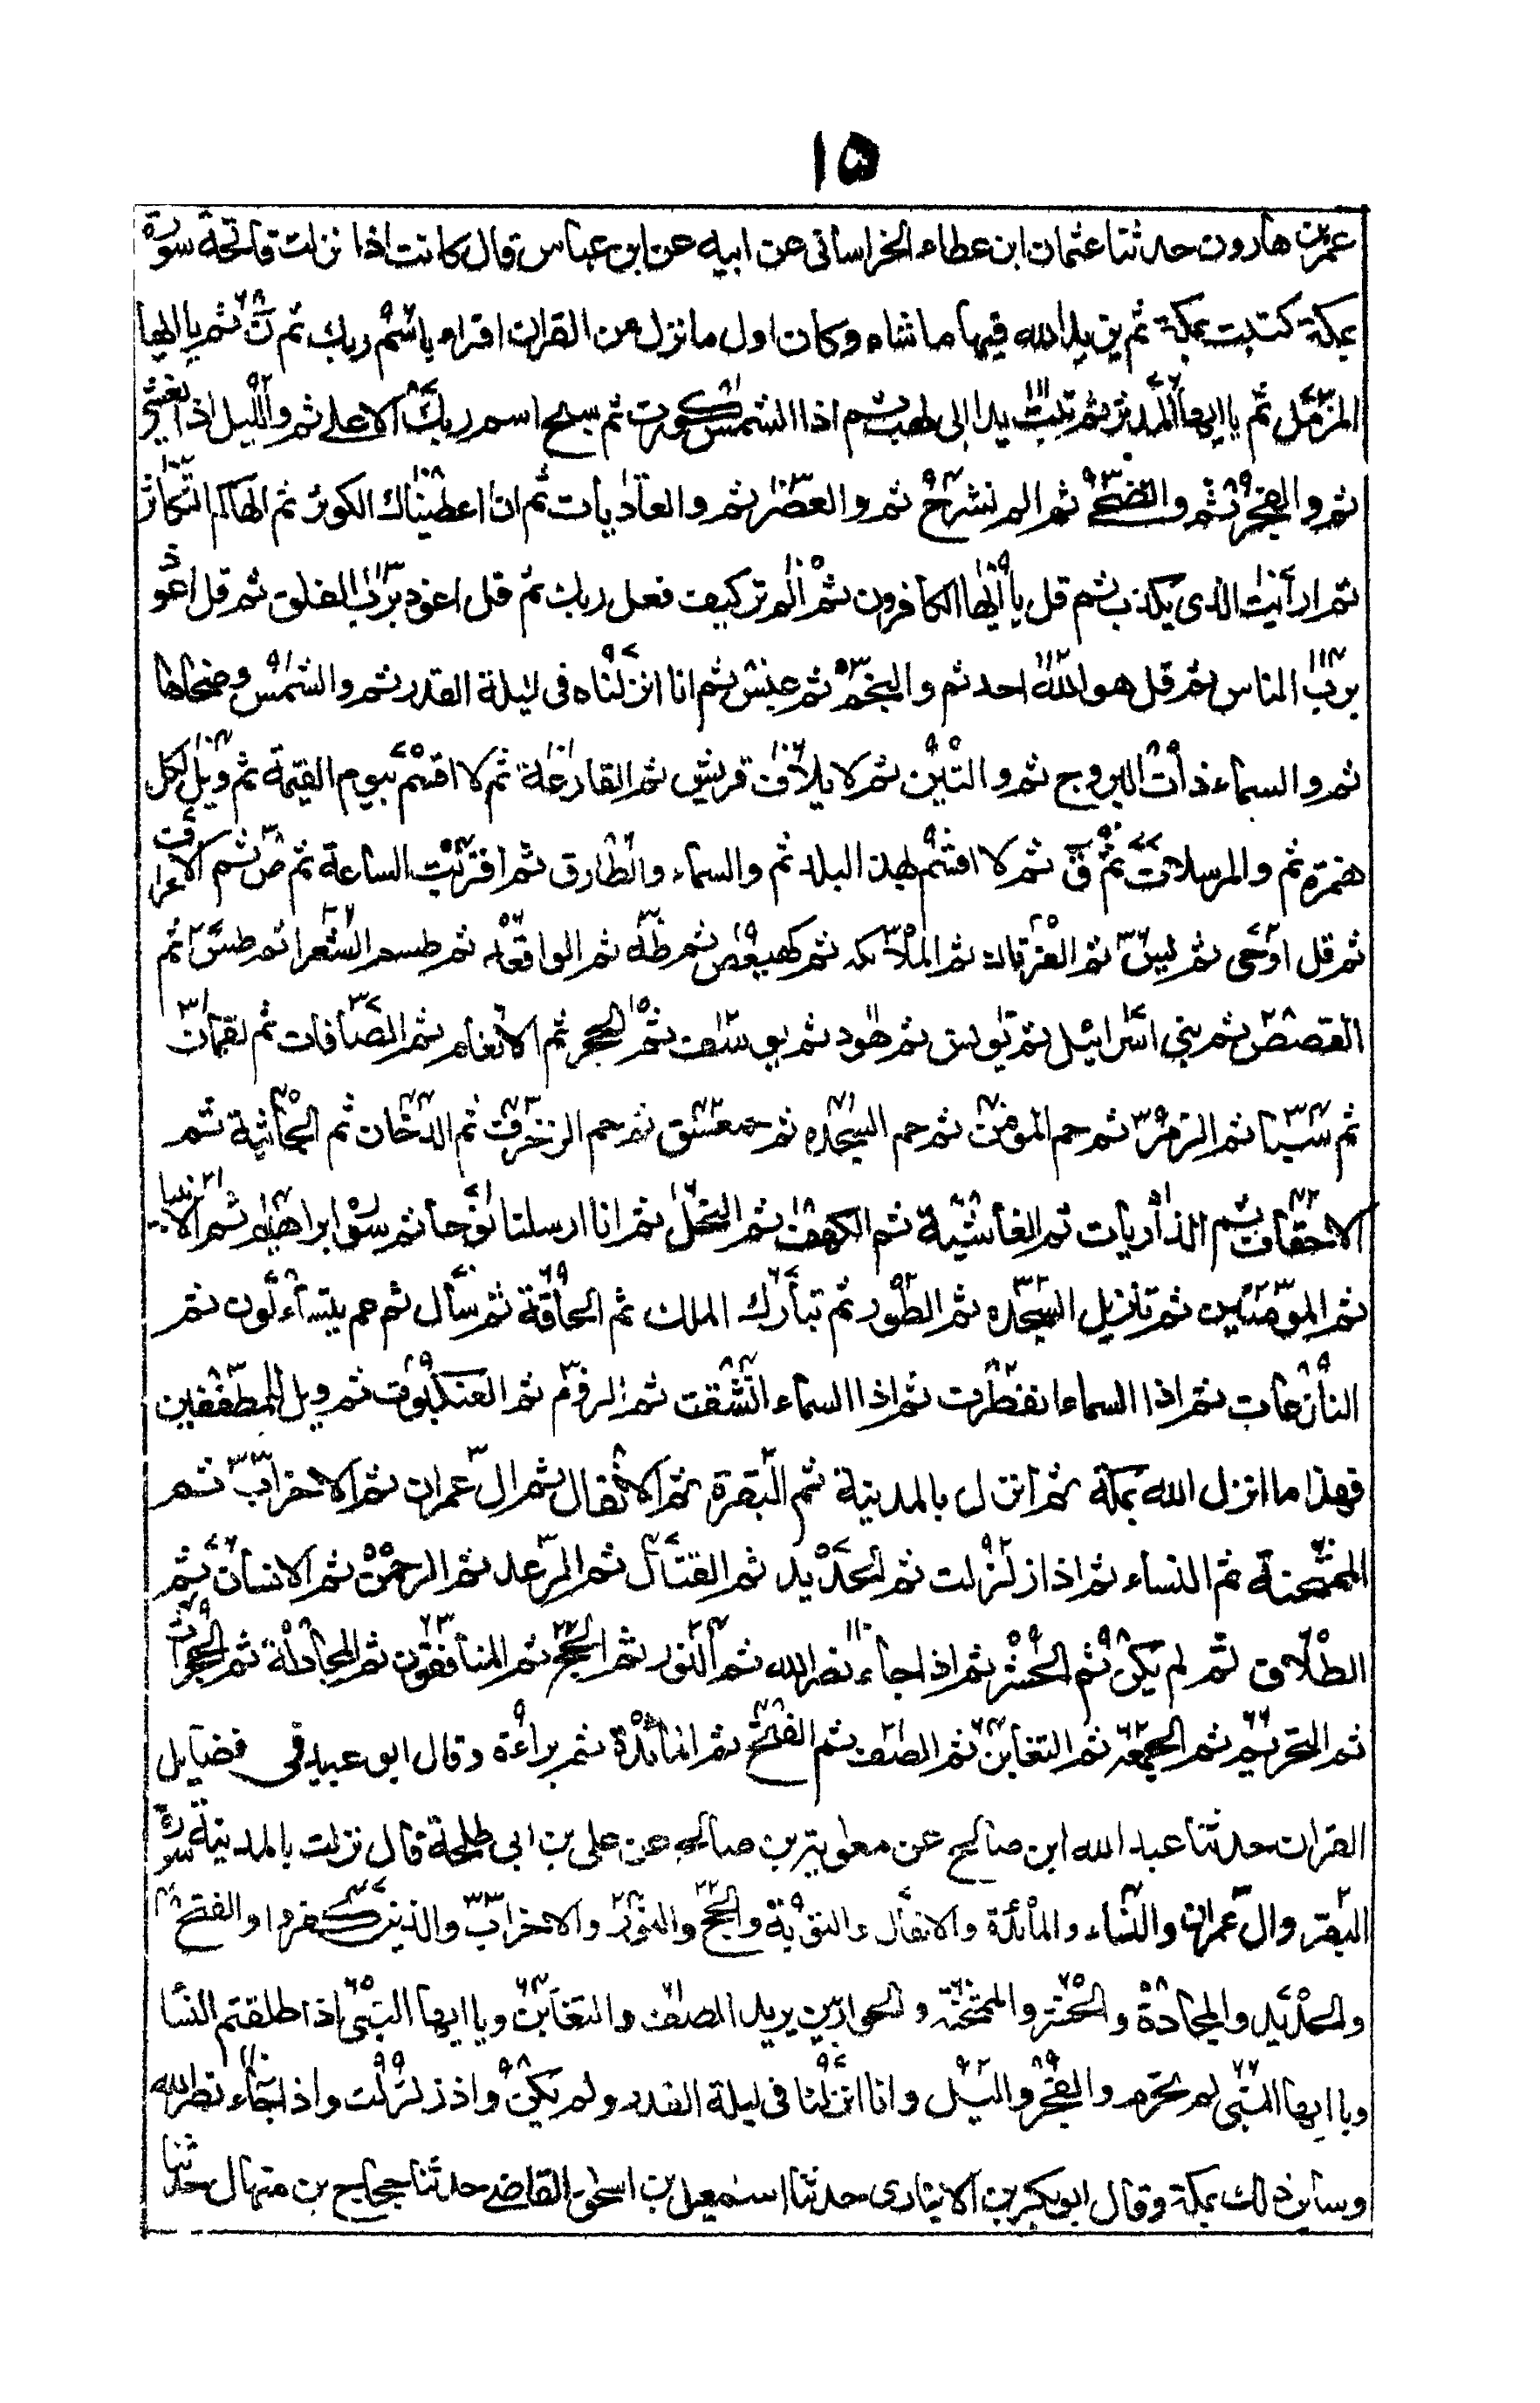 ١٥
عمر بن هارون حدثنا عثمان ابن عطاء الخراسانى عن ابيه عن ابن عباس قال كانت اذا نزلت فاتحة سورة
بمكة كتبت بمكة ثم يزيد الله فيها ما شاء وكان اول ما نزل من القران اقراء باسم ربك ثم ن ثم يا ايها
المزمل ثم يا ايها المدثر ثم تبت يدا ابى لهب ثم اذا الشمس كورت ثم سبح اسم ربك الاعلى ثم والليل اذا يغشى
ثم والفجر ثم والضحى ثم الم نشرح ثم والعصر ثم والعاديات ثم انا اعطيناك الكوثر ثم الهاكم التكاثر
ثم ارأيت الذى يكذب ثم قل يا ايها الكافرون ثم الم تر كيف فعل ربك ثم قل اعوذ برب الفلق ثم قل اعوذ
برب الناس ثم قل هو الله احد ثم والنجم ثم عبس ثم انا انزلناه فى ليلة القدر ثم والشمس وضحاها
ثم والسماء ذات البروج ثم والتين ثم لايلاف قريش ثم القارعة ثم لا اقسم بيوم القيمة ثم ويل لكل
همزة ثم والمرسلات ثم ق ثم لا اقسم بهذ البلد ثم والسماء والطارق ثم اقتربت الساعة ثم ص ثم الاعراف
ثم قل اوحى ثم يس ثم الفرقان ثم الملائكه ثم كهيعص ثم طه ثم الواقعه ثم طسم الشعرا ثم طس ثم
القصص ثم بنى اسرائيل ثم يونس ثم هود ثم يوسف ثم الحجر ثم الانعام ثم الصافات ثم لقمان
ثم سبا ثم الزمر ثم حم المومن ثم حم السجده ثم حمعسق ثم حم الزخرف ثم الدخان ثم الجاثية ثم
الاحقاف ثم الذاريات ثم الغاشية ثم الكهف ثم النحل ثم انا ارسلنا نوحا ثم سورة ابراهيم ثم الانبيا
ثم المومنين ثم تنزيل السجده ثم الطور ثم تبارك الملك ثم الحاقة ثم سأل ثم عم يتساءلون ثم
النازعات ثم اذا السماء انفطرت ثم اذا السماء انشقت ثم الروم ثم العنكبوت ثم ويل للمطففين
فهذا ما انزل الله بمكة ثم انزل بالمدينة ثم البقرة ثم الانفال ثم ال عمران ثم الاحزاب ثم
الممتحنة ثم النساء ثم اذا زلزلت ثم الحديد ثم القتال ثم الرعد ثم الرحمن ثم الانسان ثم
الطلاق ثم لم يكن ثم الحشر ثم اذا جاء نصر الله ثم النور ثم الحج ثم المنافقون ثم المجادلة ثم الحجرات
ثم التحريم ثم الجمعه ثم التغابن ثم الصف ثم الفتح ثم المائدة ثم براءة وقال ابو عبيد فى فضايل
القران حدثنا عبد الله ابن صالح عن معاوية بن صالح عن على بن ابى طلحة قال نزلت بالمدينة سورة
البقر وال عمران والنساء والمائدة والانفال والتوبة والحج والنور والاحزاب والذين كفروا والفتح
والحديد والمجادلة والحشر والممتحنه والحواريين يريد الصف والتغابن ويا ايها النبى اذا طلقتم النسا
ويا ايها النبى لم تحرم والفجر والليل وانا انزلنا فى ليلة القدر ولم يكن واذ زلزلت واذا جاء نصر الله
وساير ذلك بمكة وقال ابو بكر بن الانبارى حدثنا اسمعيل بن اسحق القاضى حدثنا حجاج بن منهال حدثنا